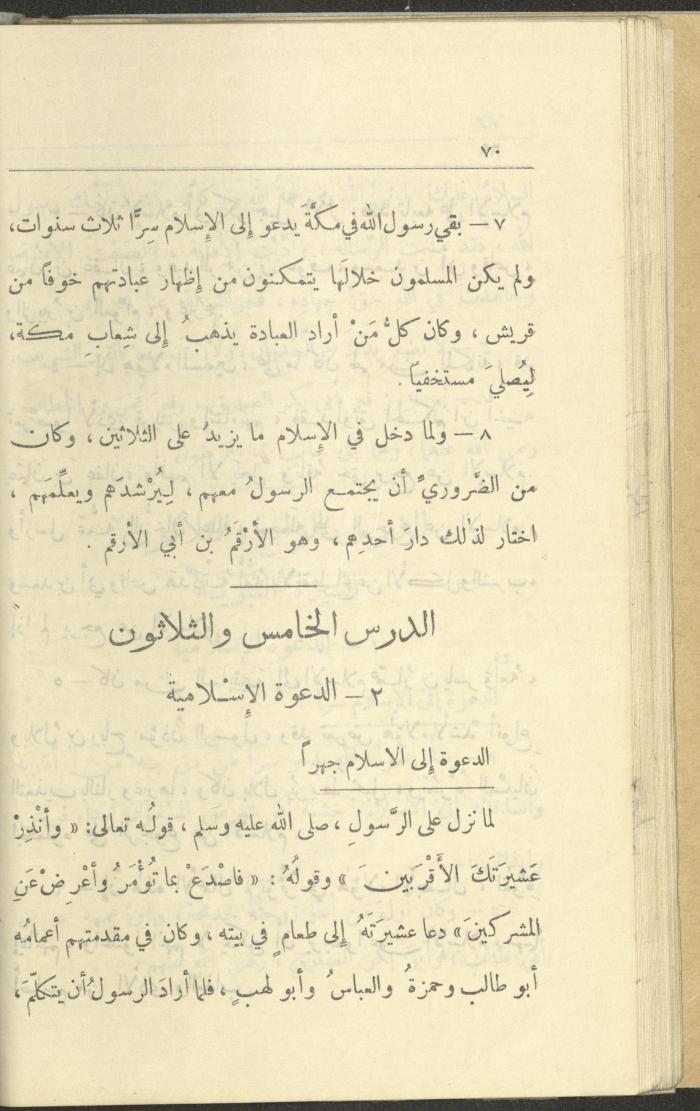 ٧٠
٧ — بقي رسول الله في مكَّةَ يدعو إِلى الإِسلام سِرًّا ثلاث سنوات،
ولم يكن المسلمون خلالَها يتمكنون من إِظهار عبادتهم خوفاً من
قريش ، وكان كلُّ مَنْ أراد العبادة يذهبُ إِلى شِعابِ مكة،
لِيُصليَ مستخفياً .
٨ — ولما دخل في الإِسلام ما يزيدُ على الثلاثين ، وكان
من الضَّروريِّ أن يجتمع الرسولُ معهم ، لِيُرْشدَهم ويعلِّمَهم ،
اختار لذلك دارَ أحدِهم ، وهو الأرْقَمُ بن أبي الأرقم .
الدرس الخامس والثلاثون
٢ — الدعوة الإِسْلامية
الدعوة إِلى الاسلام جهراً
لما نزل على الرَّسولِ ، صلى الله عليه وسلم ، قولُه تعالى: « وأنْذِرْ
عَشيرَتَكَ الأَقْرَبينَ » وقولُهُ : « فاصْدَعْ بما تُؤْمَرُ وأعْرِضْ عَنِ
المشركينَ» دعا عشيرَتَهُ إِلى طعامٍ في بيته ، وكان في مقدمتهم أعمامُه
أبو طالب وحمزةُ والعباسُ وأبو لهبٍ ، فلما أرادَ الرسولُ أن يتكلّمَ،